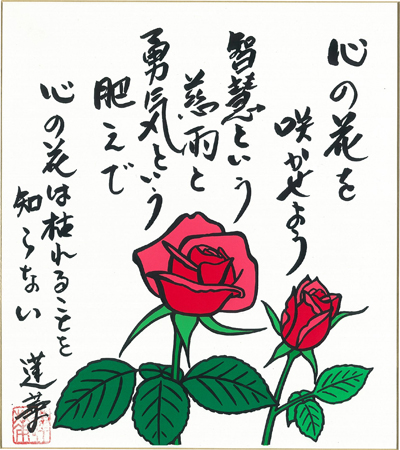 心の花を
咲かせよう
智慧という
慈雨と
勇気という
肥えで
心の花は枯れることを
知らない
蓮華